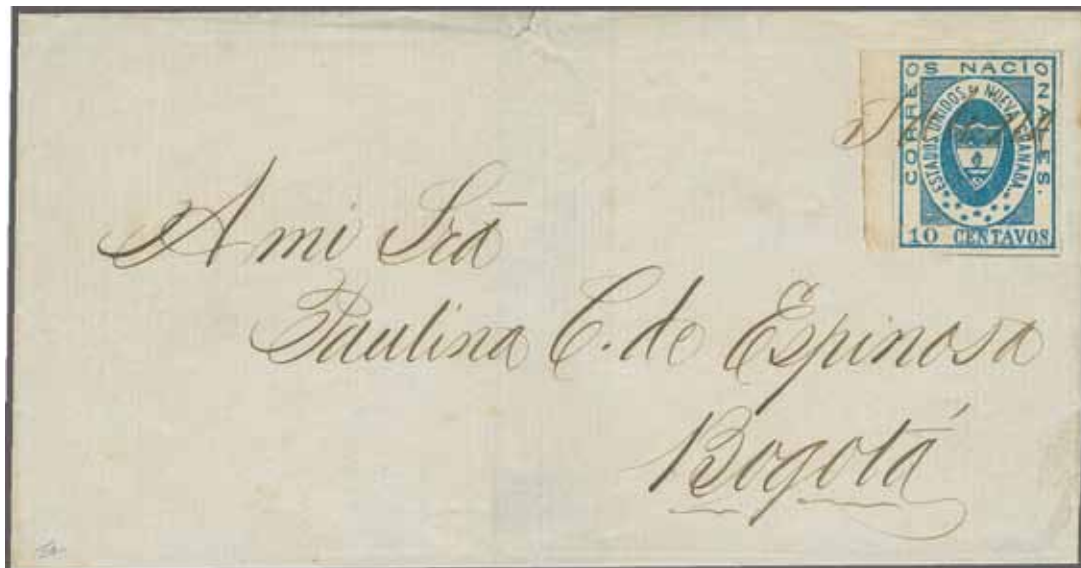 CORREOS NACIONALES.
ESTADOS UNIDOS DE NUEVA GRANADA.
10 CENTAVOS
A mi Srā
Paulina C. de Espinosa
Bogotá